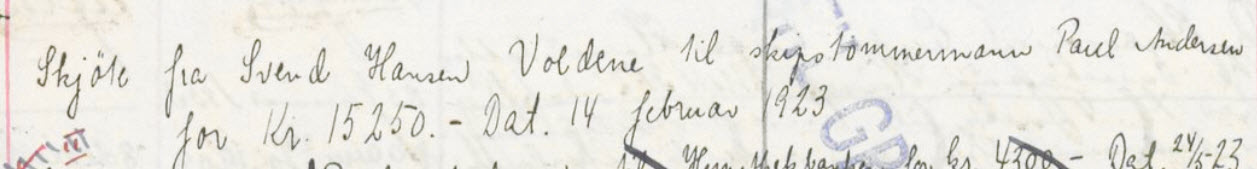 Skjöte fra Svend Hansen Voldene til skipstømmermann Paul Andersen
for Kr. 15250.- Dat. 14 februar 1923
Hypothekbanken for kr. 4300 - Dat. 24/5-23